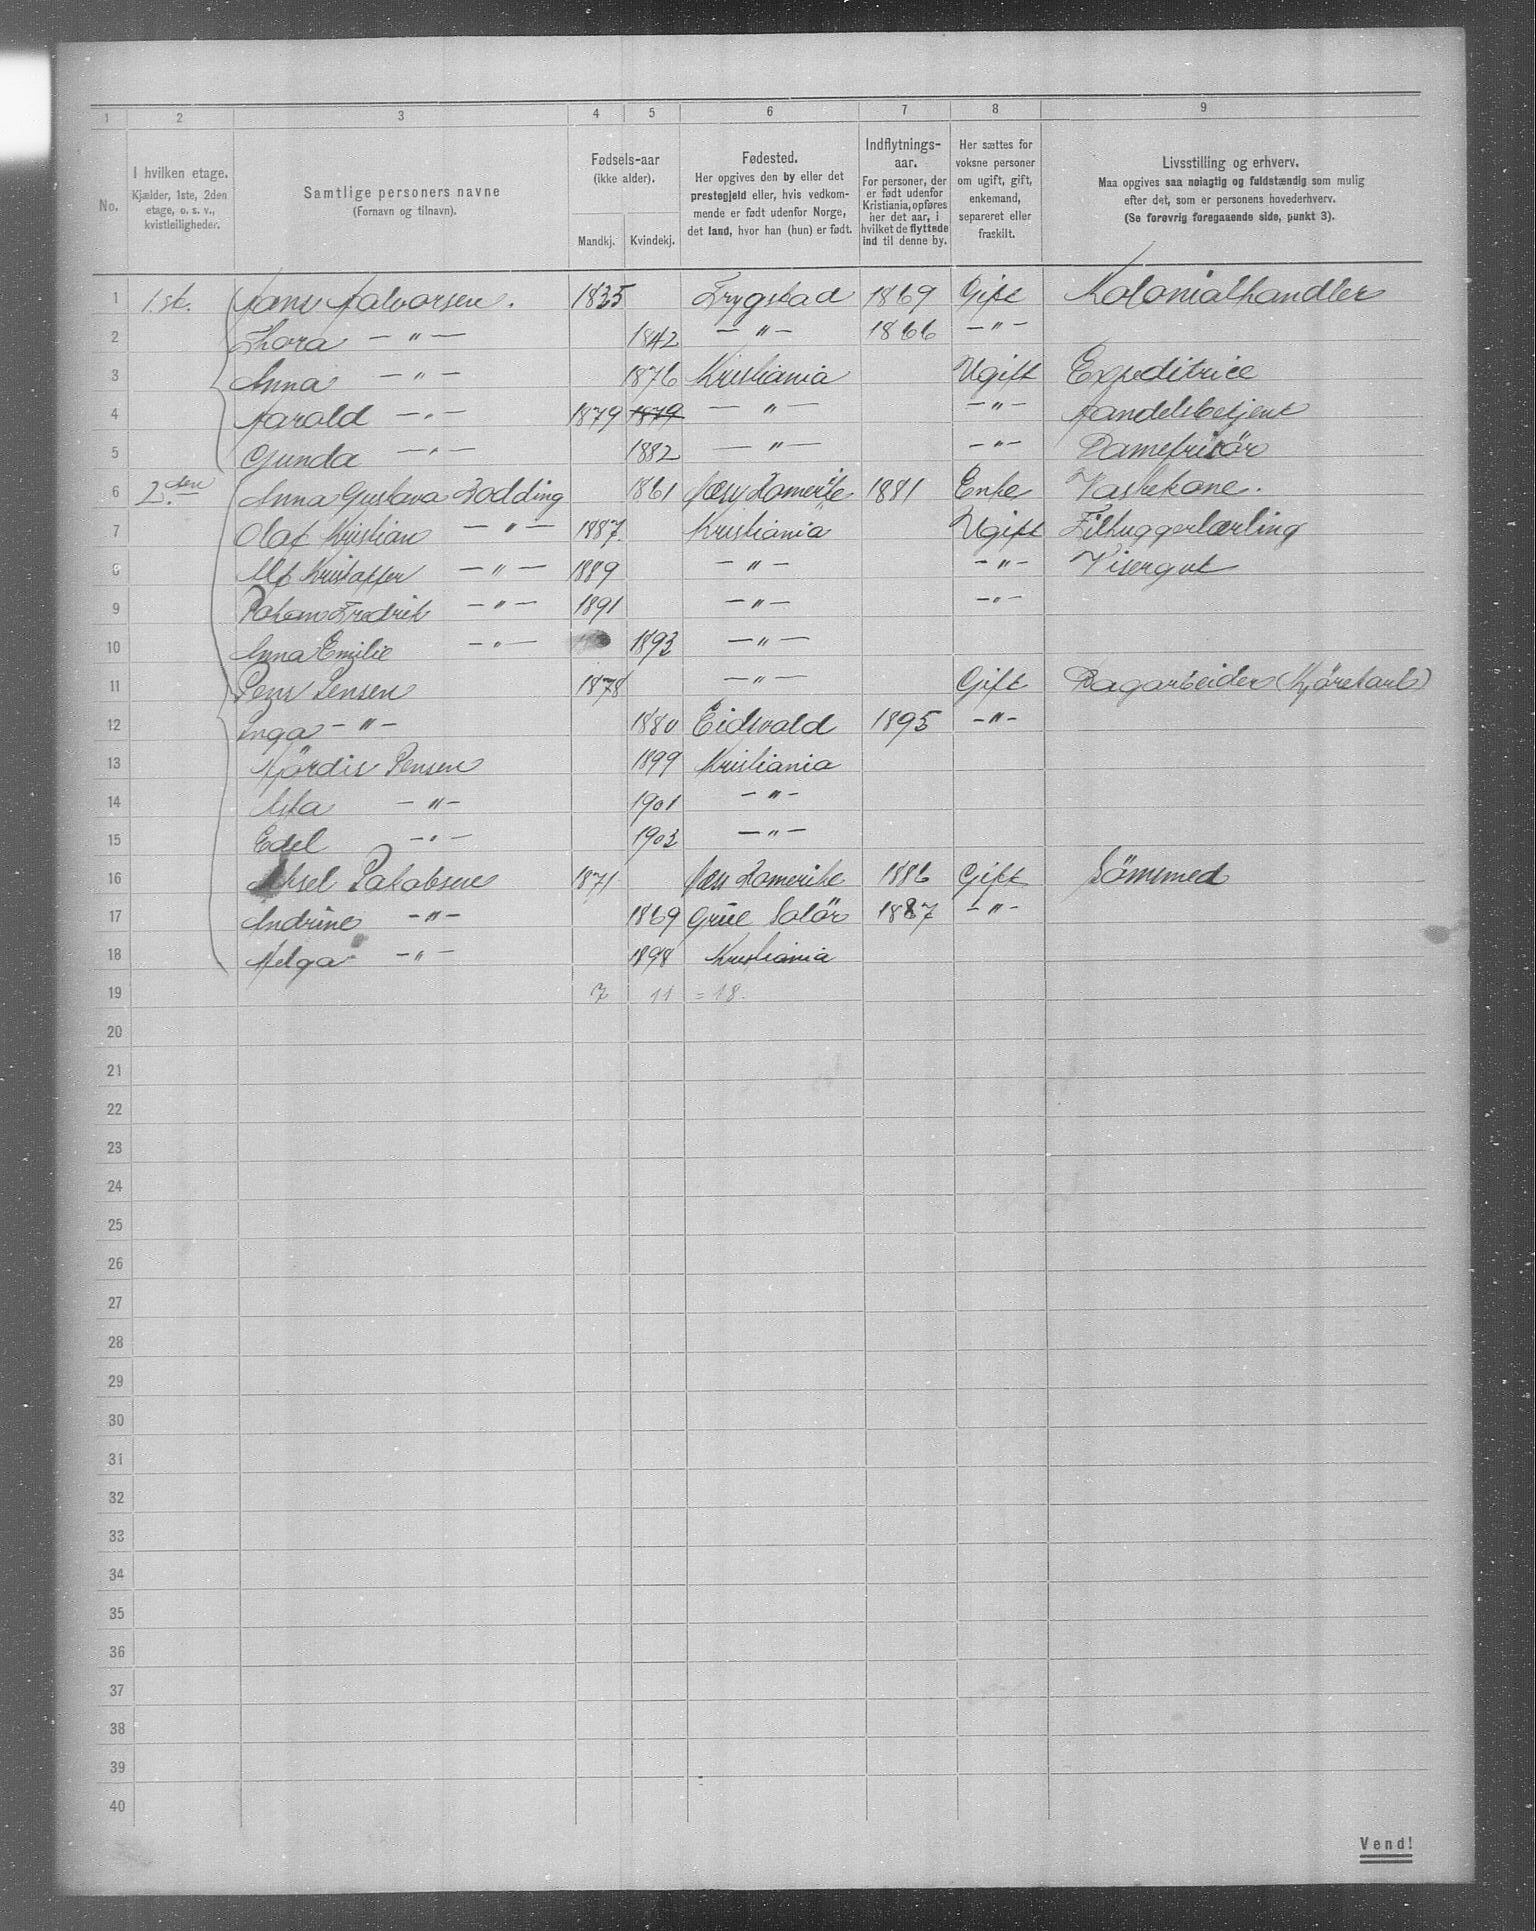 1 2 3 4 5 6 7 8 9
No.
I hvilken etage.
Kjælder, 1ste, 2den
etage, o. s. v.,
kvistleiligheder.
Samtlige personers navne
(Fornavn og tilnavn).
Fødsels-aar
(ikke alder).
Mandkj. Kvindekj.
Fødested.
Her opgives den by eller det
prestegjeld eller, hvis vedkom-
mende er født udenfor Norge,
det land, hvor han (hun) er født.
Indflytnings-
aar.
For personer, der
er født udenfor
Kristiania, opføres
her det aar, i
hvilket de flyttede
ind til denne by.
Her sættes for
voksne personer
om ugift, gift,
enkemand,
separeret eller
fraskilt.
Livsstilling og erhverv.
Maa opgives saa nøiagtig og fuldstændig som mulig
efter det, som er personens hovederhverv.
(Se forøvrig foregaaende side, punkt 3).
1 1. st. Hans Halvorsen. 1835 Trygstad 1869 Gift Kolonialhandler
2 Thora — " — 1842 — " — 1866 — " —
3 Anna — " — 1876 Kristiania Ugift Expeditrice
4 Harold — " — 1879 1879 — " — — " — Handelsbetjent
5 Gunda — " — 1882 — " — — " — Damefrisör
6 2.den Anna Gustava Rodding 1861 Næs Romerike 1881 Enke Vaskekone.
7 Olaf Kristian — " — 1887. Kristiania Ugift Filhuggerlærling
8 Alf Kristoffer — " — 1889 — " — — " — Visergut
9 Fredrik — " — 1891 — " — — " —
10 Anna Emilie — " — 1893 — " —
11 Jens Jensen 1878 — " — Gift Dagarbeider (Kjörekarl)
12 Inga — " — 1880 Eidsvold 1895 — " —
13 Hjördis Jensen 1899 Kristiania
14 Asta — " — 1901 — " —
15 Edel — " — 1903 — " —
16 Aksel Jakobsen 1871 Næs Romerike 1886 Gift Sömmed
17 Andrine — " — 1869 Grue Solör 1887 — " —
18 Helga — " — 1898 Kristiania
19 7 11 = 18.
20
21
22
23
24
25
26
27
28
29
30
31
32
33
34
35
36
37
38
39
40
Vend!